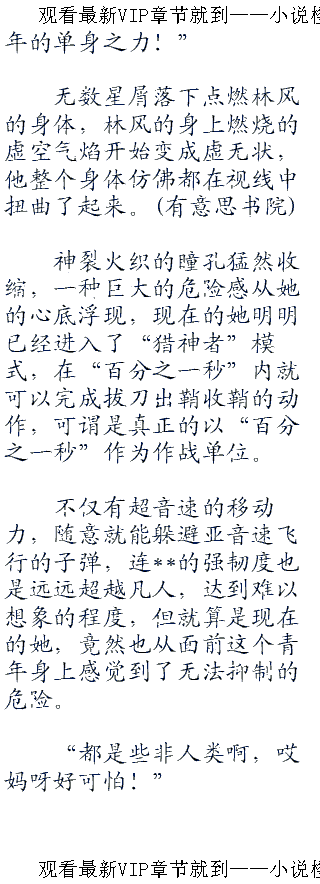 观看最新VIP章节就到——小说楼
年的单身之力！”
无数星屑落下点燃林风
的身体，林风的身上燃烧的
虚空气焰开始变成虚无状，
他整个身体仿佛都在视线中
扭曲了起来。(有意思书院)
神裂火织的瞳孔猛然收
缩，一种巨大的危险感从她
的心底浮现，现在的她明明
已经进入了“猎神者”模
式，在“百分之一秒”内就
可以完成拔刀出鞘收鞘的动
作，可谓是真正的以“百分
之一秒”作为作战单位。
不仅有超音速的移动
力，随意就能躲避亚音速飞
行的子弹，连**的强韧度也
是远远超越凡人，达到难以
想象的程度，但就算是现在
的她，竟然也从面前这个青
年身上感觉到了无法抑制的
危险。
“都是些非人类啊，哎
妈呀好可怕！”
观看最新VIP章节就到——小说楼